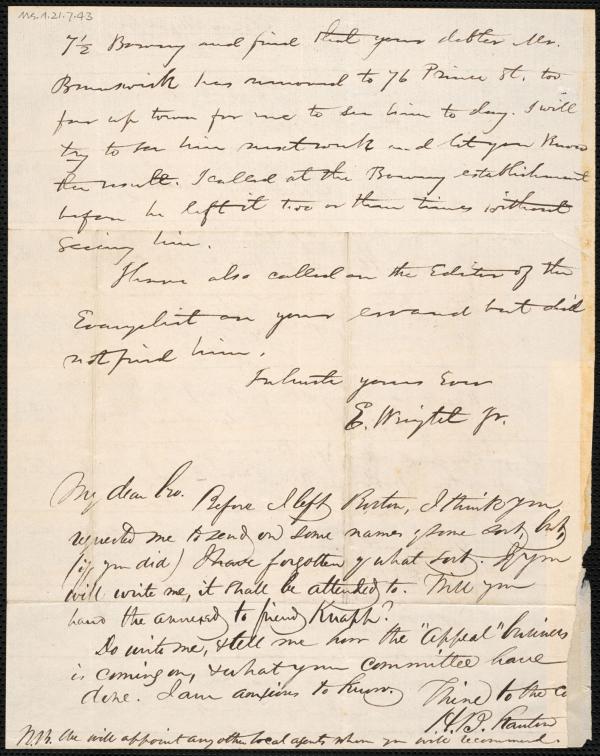 Ms.A.21.7.43
7½ Bowery and find that your debtor Mr.
Brunswick has removed to 76 Prince St. too
far up town for me to see him to day. I will
try to see him next week and let you know
the result. I called at the Bowery establishment
before he left it two or three times without
seeing him.
I have also called on the Editor of the
Evangelist on your errand but did
not find him.
In haste yours ever
E. Wright Jr.
My dear bro. Before I left Boston, I think you
requested me to send on some names of some sort, but,
(if you did) I have forgotten of what sort. If you
will write me, it shall be attended to. Will you
hand the annexed to friend Knapp?
Do write me, & tell me how the "Appeal" business
is coming on, & what your committee have
done. I am anxious to know. Thine to the
H. B. Stanton
N.B. We will appoint any other local agents whom you will recommend.